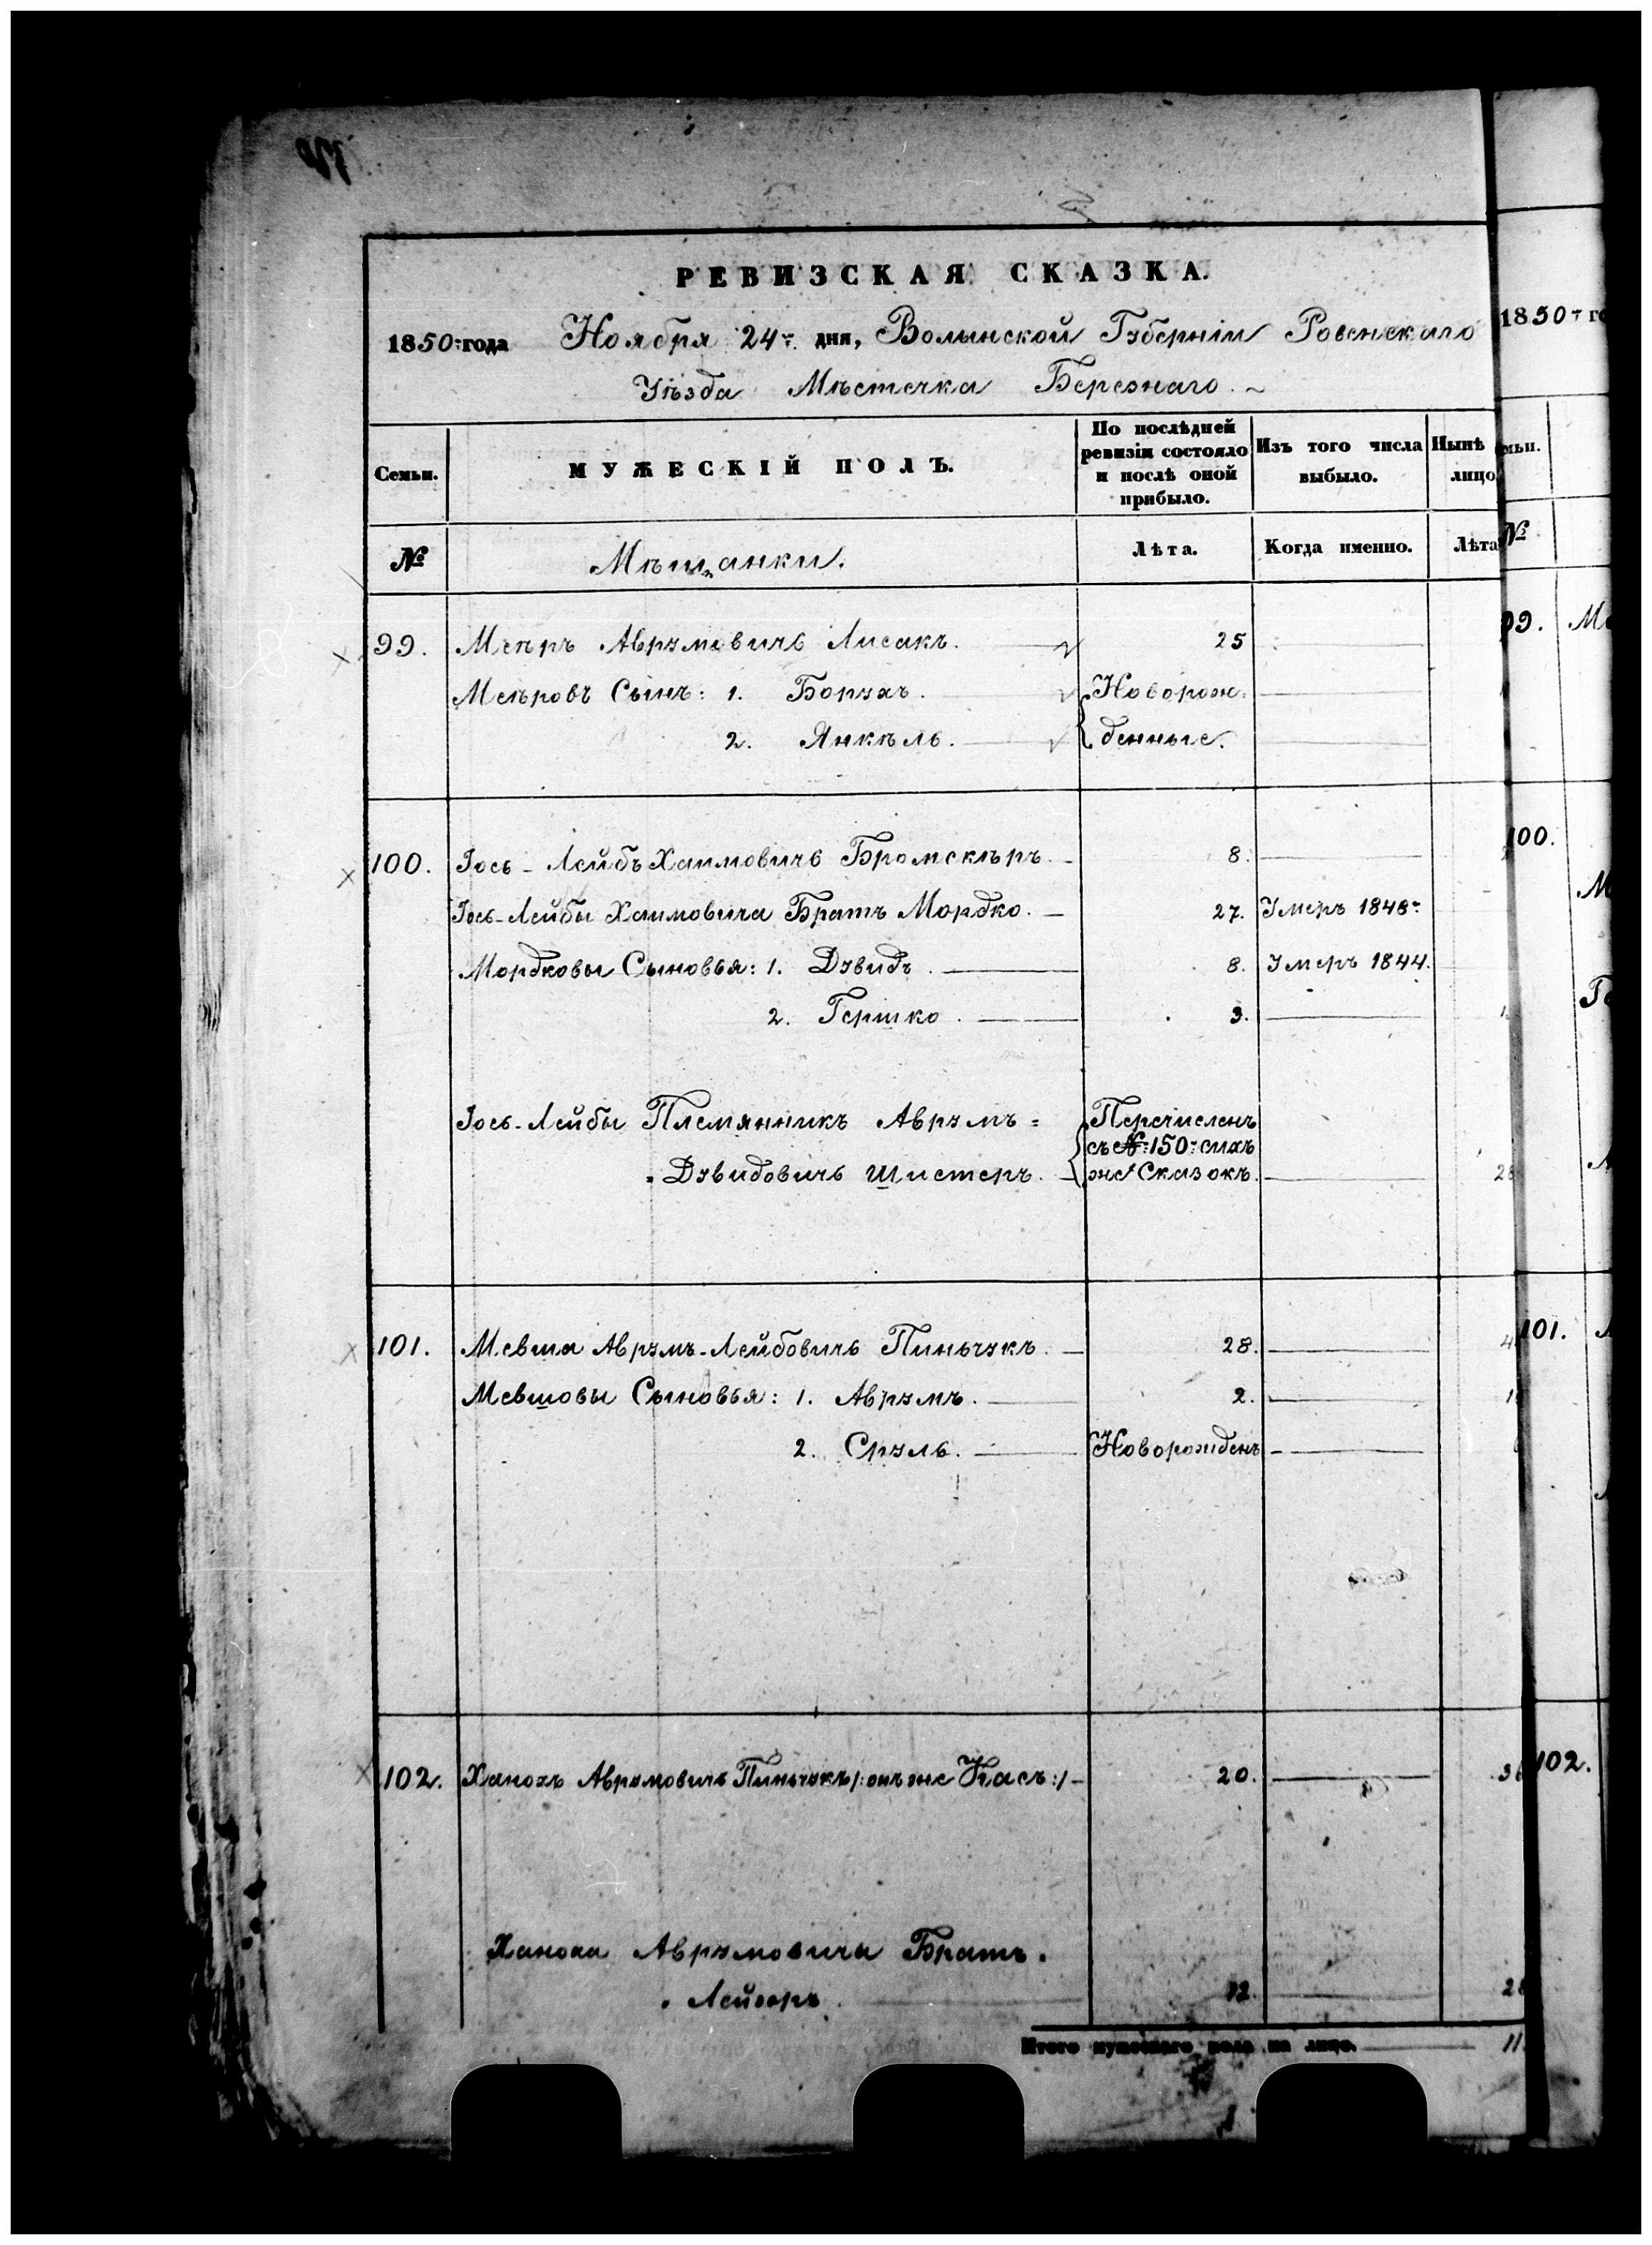 РЕВИЗСКАЯ СКАЗКА.
1850: года Ноября 24го дня, Волынской Губерніи Ровенскаго
Уѣзда Мѣстечка Березнаго.
Семьи.
МУЖЕСКІЙ ПОЛЪ.
По послѣдней ревизіи состояло и послѣ оной прибыло.
Изъ того числа выбыло.
Нынѣ лицо
№
Мѣщанки.
Лѣта.
Когда именно.
Лѣта
99. Меѣръ Аврумовичь Лисакъ. 25
Меѣровъ Сынъ: 1. Борухъ. Новорож-
2. Янкѣль. денные.
100. Іось-Лейбъ Хаимовичь Бромскѣръ. 8.
Іось-Лейбы Хаимовича Братъ Мордко. 27. Умеръ 1848:
Мордковы Сыновья: 1. Дувидъ. 8. Умеръ 1844.
2. Гершко. 3.
Іось-Лейбы Племянникъ Аврумъ= Перечисленъ
съ №: 150: сихъ
Дувидовичь Шистеръ. же Сказокъ.
101. Мевша Аврумъ-Лейбовичь Пиньчукъ. 28.
Мевшовы Сыновья: 1. Аврумъ. 2.
2. Сруль. Новорожденъ
102. Ханохъ Аврумовичь Пиньчукъ /: онъ же Касъ :/ 20.
Ханоха Аврумовича Братъ.
Лейзоръ. 12.
Итого мужескаго пола на лицо. 11
1850
№
99.
100.
101.
102.